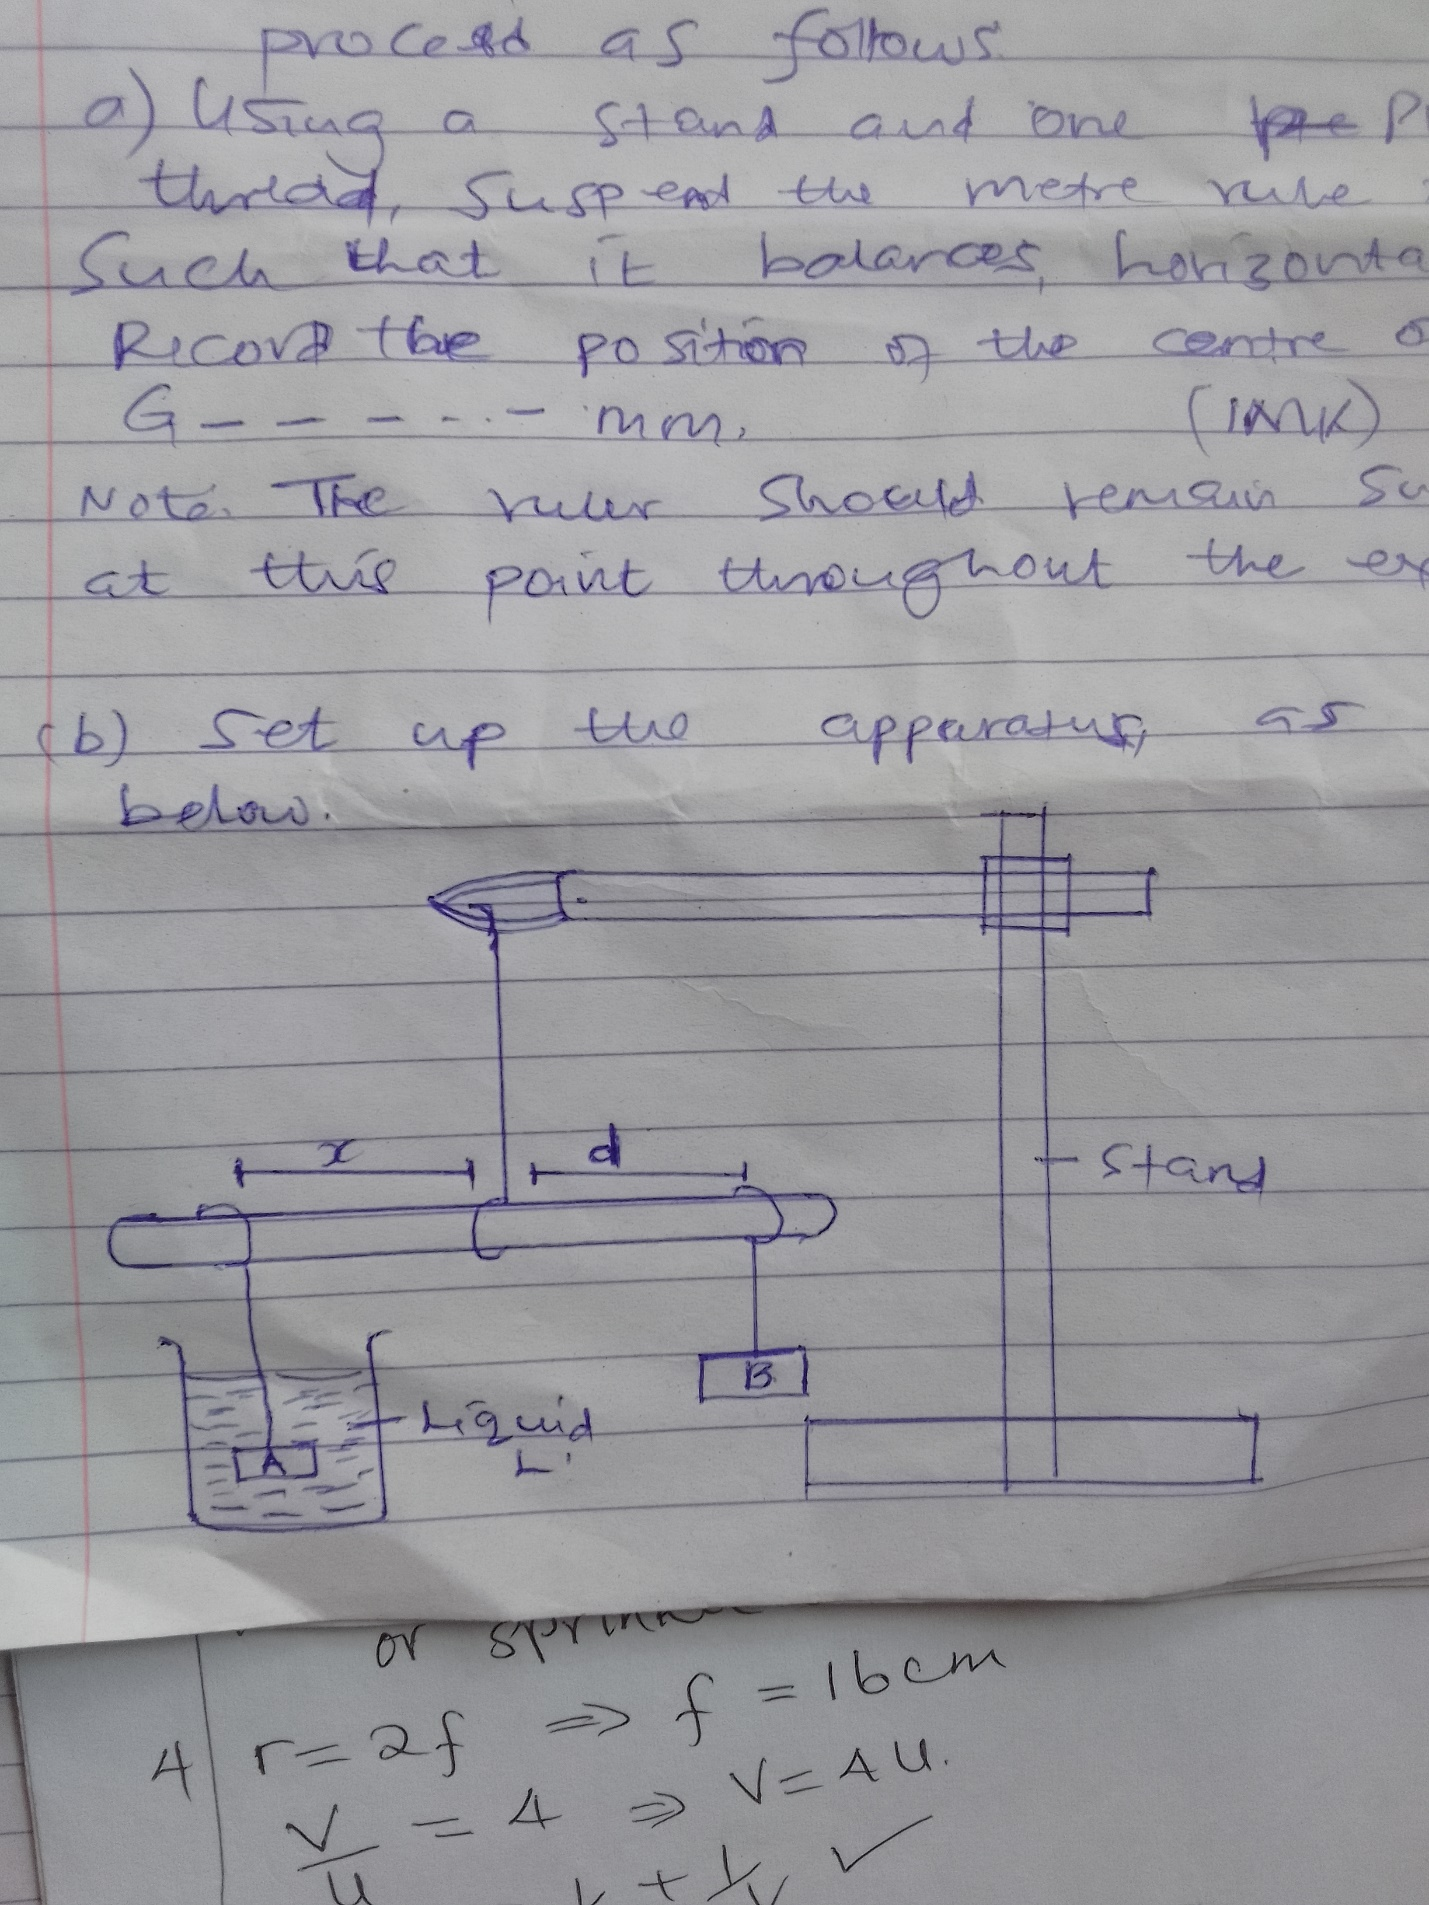 proceed as follows
a) Using a stand and one
thread, suspend the metre rule
Such that it balances, horizonta
Record the position of the centre o
G------- mm. (1MK)
Note. The ruler should remain Su
at this point throughout the ex
(b) Set up the apparatus, as
below.
x d
Stand
B
Liquid
L
A
or
r = 2f ⇒ f = 16cm
4
v/u = 4 ⇒ v = 4u.